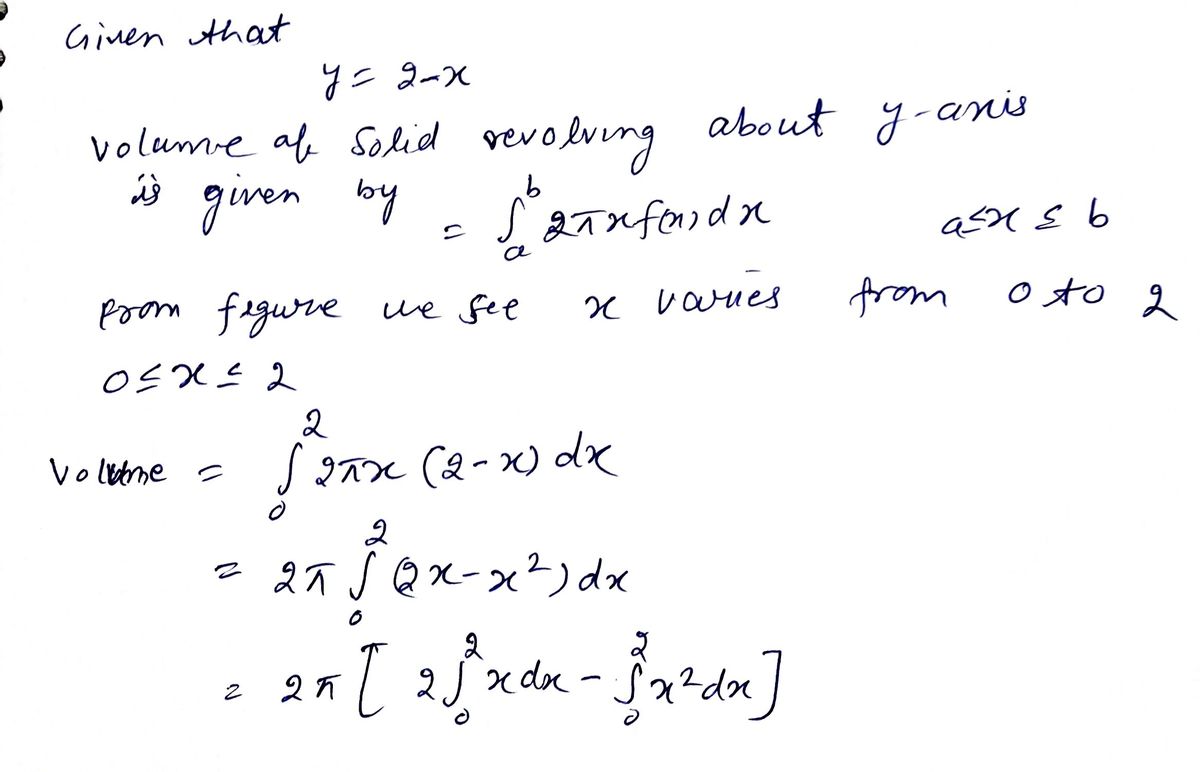 Given that
y = 2-x
volume of solid revolving about y-axis
is given by = ∫ₐᵇ 2πxf(x)dx a≤x≤b
From figure we see x varies from 0 to 2
0≤x≤2
Volume = ∫₀² 2πx (2-x) dx
= 2π ∫₀² (2x-x²) dx
= 2π [ 2∫₀² x dx - ∫₀² x² dx ]